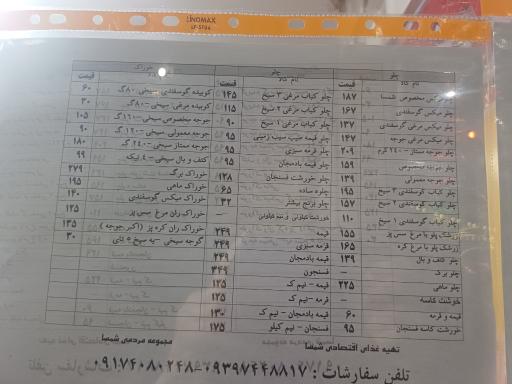 LINOMAX
چلو
نام کالا
قیمت
چلو میکس مخصوص شمسا ۱۸۷
چلو میکس گوسفندی ۱۶۷
چلو میکس مرغی گوسفندی ۱۳۷
چلو میکس مرغی جوجه ۱۴۷
چلو جوجه ممتاز – ۲۴۰ گرم ۲۰۹
چلو جوجه مخصوص ۱۵۹
چلو جوجه معمولی ۱۳۹
چلو کباب گوسفندی ۳ سیخ ۱۹۵
چلو کباب گوسفندی ۲ سیخ ۱۵۷
چلو کباب گوسفندی ۱ سیخ ۱۱۰
زرشک پلو با مرغ سس پز ۱۵۵
زرشک پلو با مرغ کره ۱۶۵
چلو کتف و بال ۱۳۹
چلو برگ —
چلو ماهی ۲۲۵
خوشت کاسه
قیمه و قرمه ۶۰
خورشت کاسه فسنجان ۹۵
چلو
نام کالا
قیمت
چلو کباب مرغی ۳ سیخ ۱۴۵
چلو کباب مرغی ۲ سیخ ۱۱۵
چلو کباب مرغی ۱ سیخ ۹۰
چلو قیمه سیب زمینی ۹۵
چلو قرمه سبزی ۹۵
چلو قیمه بادمجان ۹۵
چلو خورشت فسنجان ۱۲۸
چلو ساده ۶۵
چلو برنج بیشتر ۳۲
خورشت کیلویی و نیم کیلویی —
قیمه ۲۴۹
قرمه سبزی ۲۴۹
قیمه بادمجان ۲۴۹
فسنجون ۳۴۹
قیمه – نیم ک ۱۲۵
قرمه – نیم ک ۱۲۵
قیمه بادمجان – نیم ک ۱۳۰
فسنجان – نیم کیلو ۱۷۵
خوراک
قیمت
کوبیده گوسفندی سیخی ۸۰گ ۶۰
کوبیده مرغی سیخی – ۸۰گ ۳۰
جوجه مخصوص سیخی – ۱۲۱گ ۱۰۵
جوجه معمولی سیخی – ۱۲۰گ ۹۰
جوجه ممتاز سیخی – ۲۴۰گ ۱۸۰
کتف و بال سیخی – ۸ تیکه ۹۹
خوراک برگ ۲۷۹
خوراک ماهی ۱۹۵
خوراک میکس گوسفندی ۱۴۰
خوراک ران مرغ سس پز ۱۲۵
خوراک ران کره پز (اکبر جوجه) ۱۳۵
گوجه سیخی – به سیخ ۵ تای ۳۰
تهیه غذای اقتصادی شمسا
مجموعه مردمی شمسا
تلفن سفارشات : ۰۹۳۹۷۴۴۸۸۱۷–۰۹۱۷۴۰۸۰۲۴۸